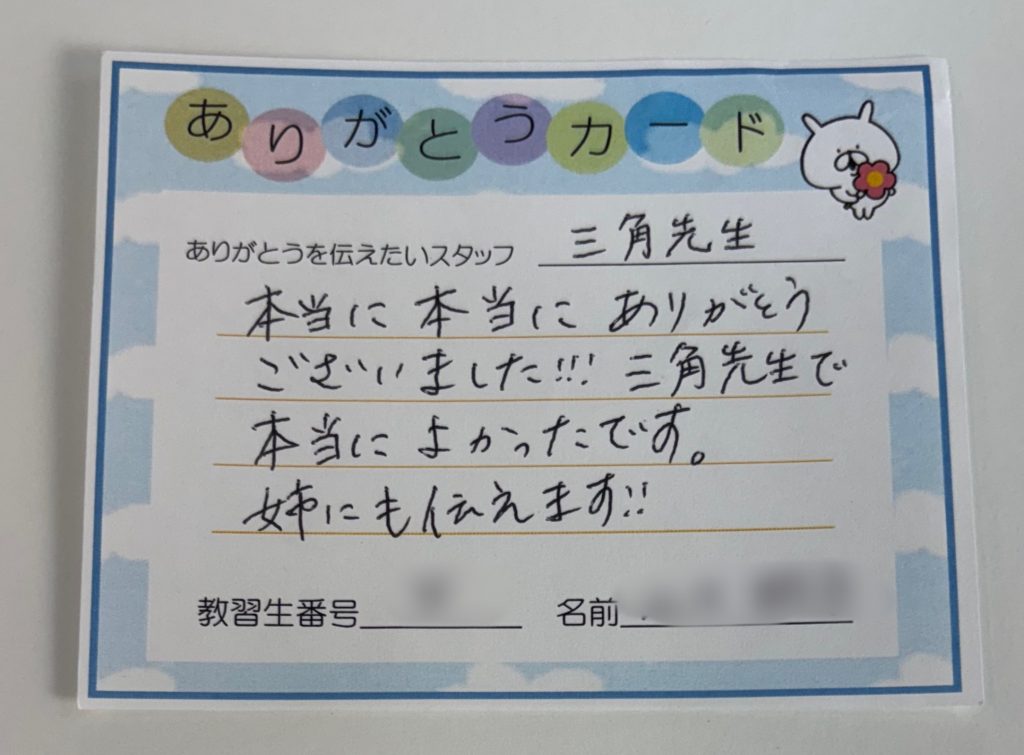 ありがとうカード
ありがとうを伝えたいスタッフ 三角先生
本当に 本当に ありがとう
ございました!!! 三角先生で
本当に よかったです。
姉にも伝えます!!
教習生番号 名前